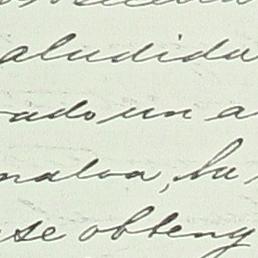 aludida
ado un a
naloa, ha
se obteng